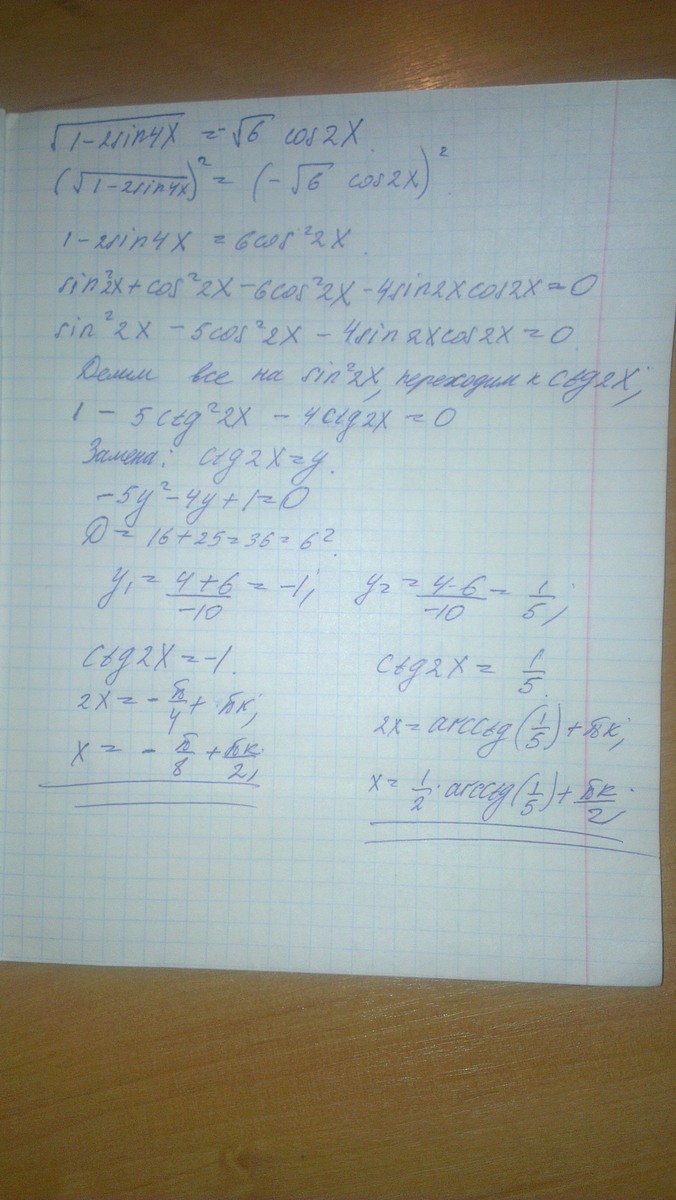 √(1-2sin4x) = -√6 cos2x.
(√(1-2sin4x))² = (-√6 cos2x)².
1-2sin4x = 6cos²2x.
sin²2x+cos²2x-6cos²2x-4sin2xcos2x=0
sin²2x - 5cos²2x - 4sin2xcos2x=0.
Делим все на sin²2x, переходим к ctg2x;
1 - 5ctg²2x - 4ctg2x=0
Замена: ctg2x=y.
-5y²-4y+1=0
D= 16+25=36=6².
y₁ = (4+6)/(-10) = -1; y₂ = (4-6)/(-10) = 1/5;
ctg2x=-1. ctg2x = 1/5.
2x = -π/4 + πк; 2x=arcctg(1/5)+πк;
x = -π/8 + πк/2; x = 1/2·arcctg(1/5)+πк/2;